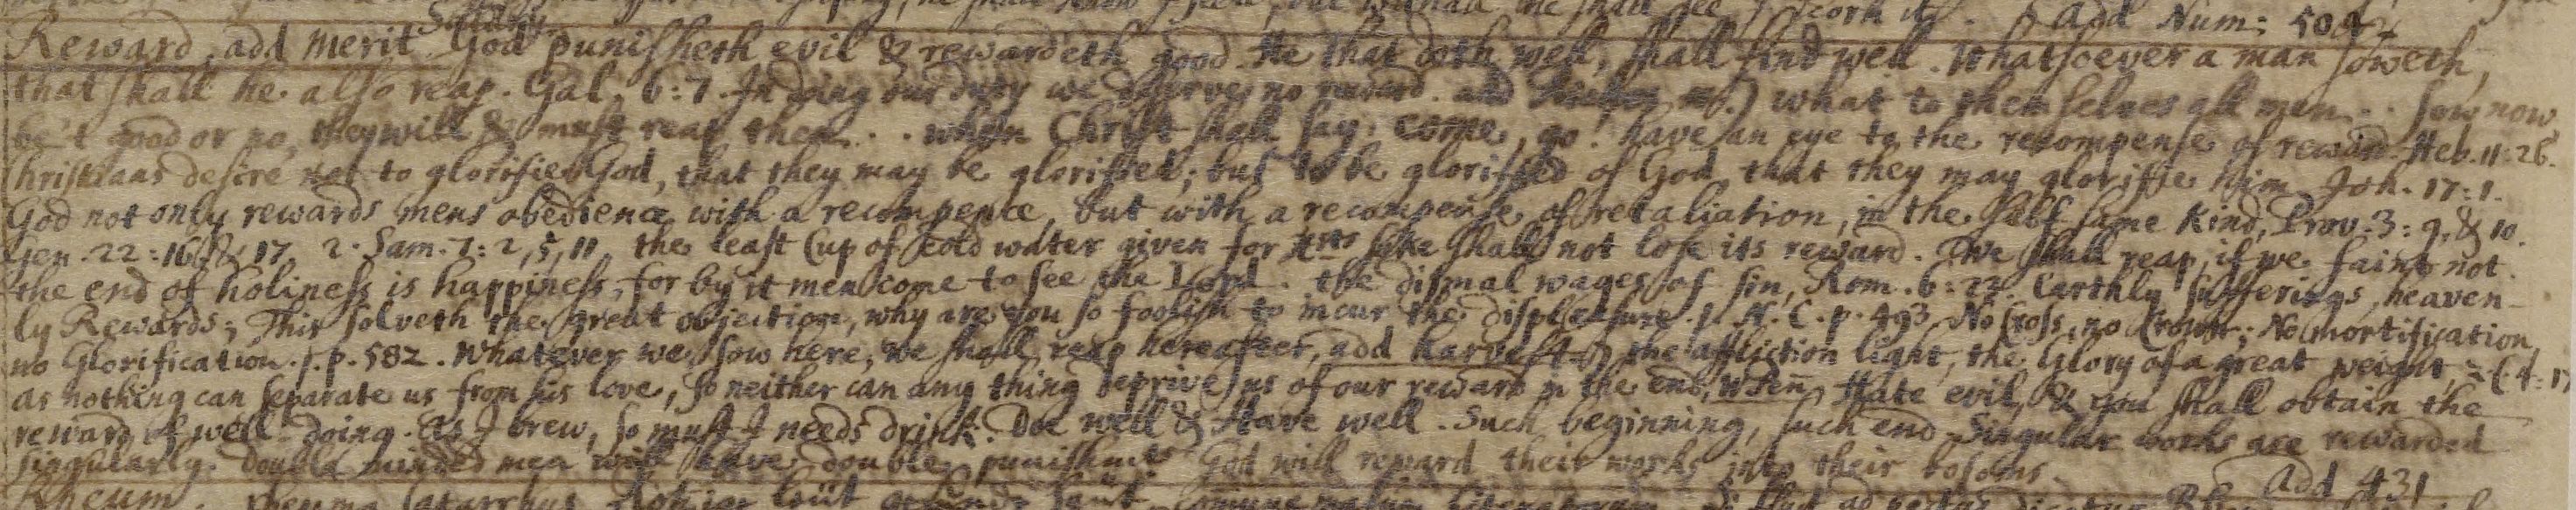 he shall see, & scorn it. Add Num: 504
Reward, add merit God punisheth evil & rewardeth good. He that doth well, shall find well. Whatsoever a man soweth,
that shall he also reap. Gal. 6:7. In doing our duty we deserve no reward. and what to themselves all men sow now
be't good or no, they will & must reap then when Christ shall say, come, go! have an eye to the recompense of reward Heb. 11:26.
Christians desire not to glorifie God, that they may be glorified; but to be glorified of God, that they may glorifie him Joh. 17:1.
God not only rewards mens obedience with a recompence, but with a recompense of retaliation, in the self same kind, Prov. 3:9, & 10.
Gen. 22:16, & 17. 2. Sam. 7:2, 5, 11, the least Cup of cold water given for sake shall not lose its reward. We shall reap, if we faint not.
the end of holiness is happiness, for by it men come to see the Lord. the dismal wages of sin, Rom. 6:23. Earthly sufferings, heaven-
ly Rewards; This solveth the great objection, why are you so foolish to incur the displeasure. C. p. 493. No Cross, no Crown; No mortification,
no Glorification. p. 582. Whatever we sow here, we shall reap hereafter, add harvest the affliction light, the Glory of a great weight, 2 C. 4:17
as nothing can separate us from his love, so neither can any thing deprive us of our reward in the end, Hate evil, & you shall obtain the
reward of well-doing. As I brew, so must I needs drink. Doe well & Have well. Such beginning, such end. Singular works are rewarded
singularly. Double minded men will have double punishmts God will reward their works into their bosoms. add 431
Rheum.